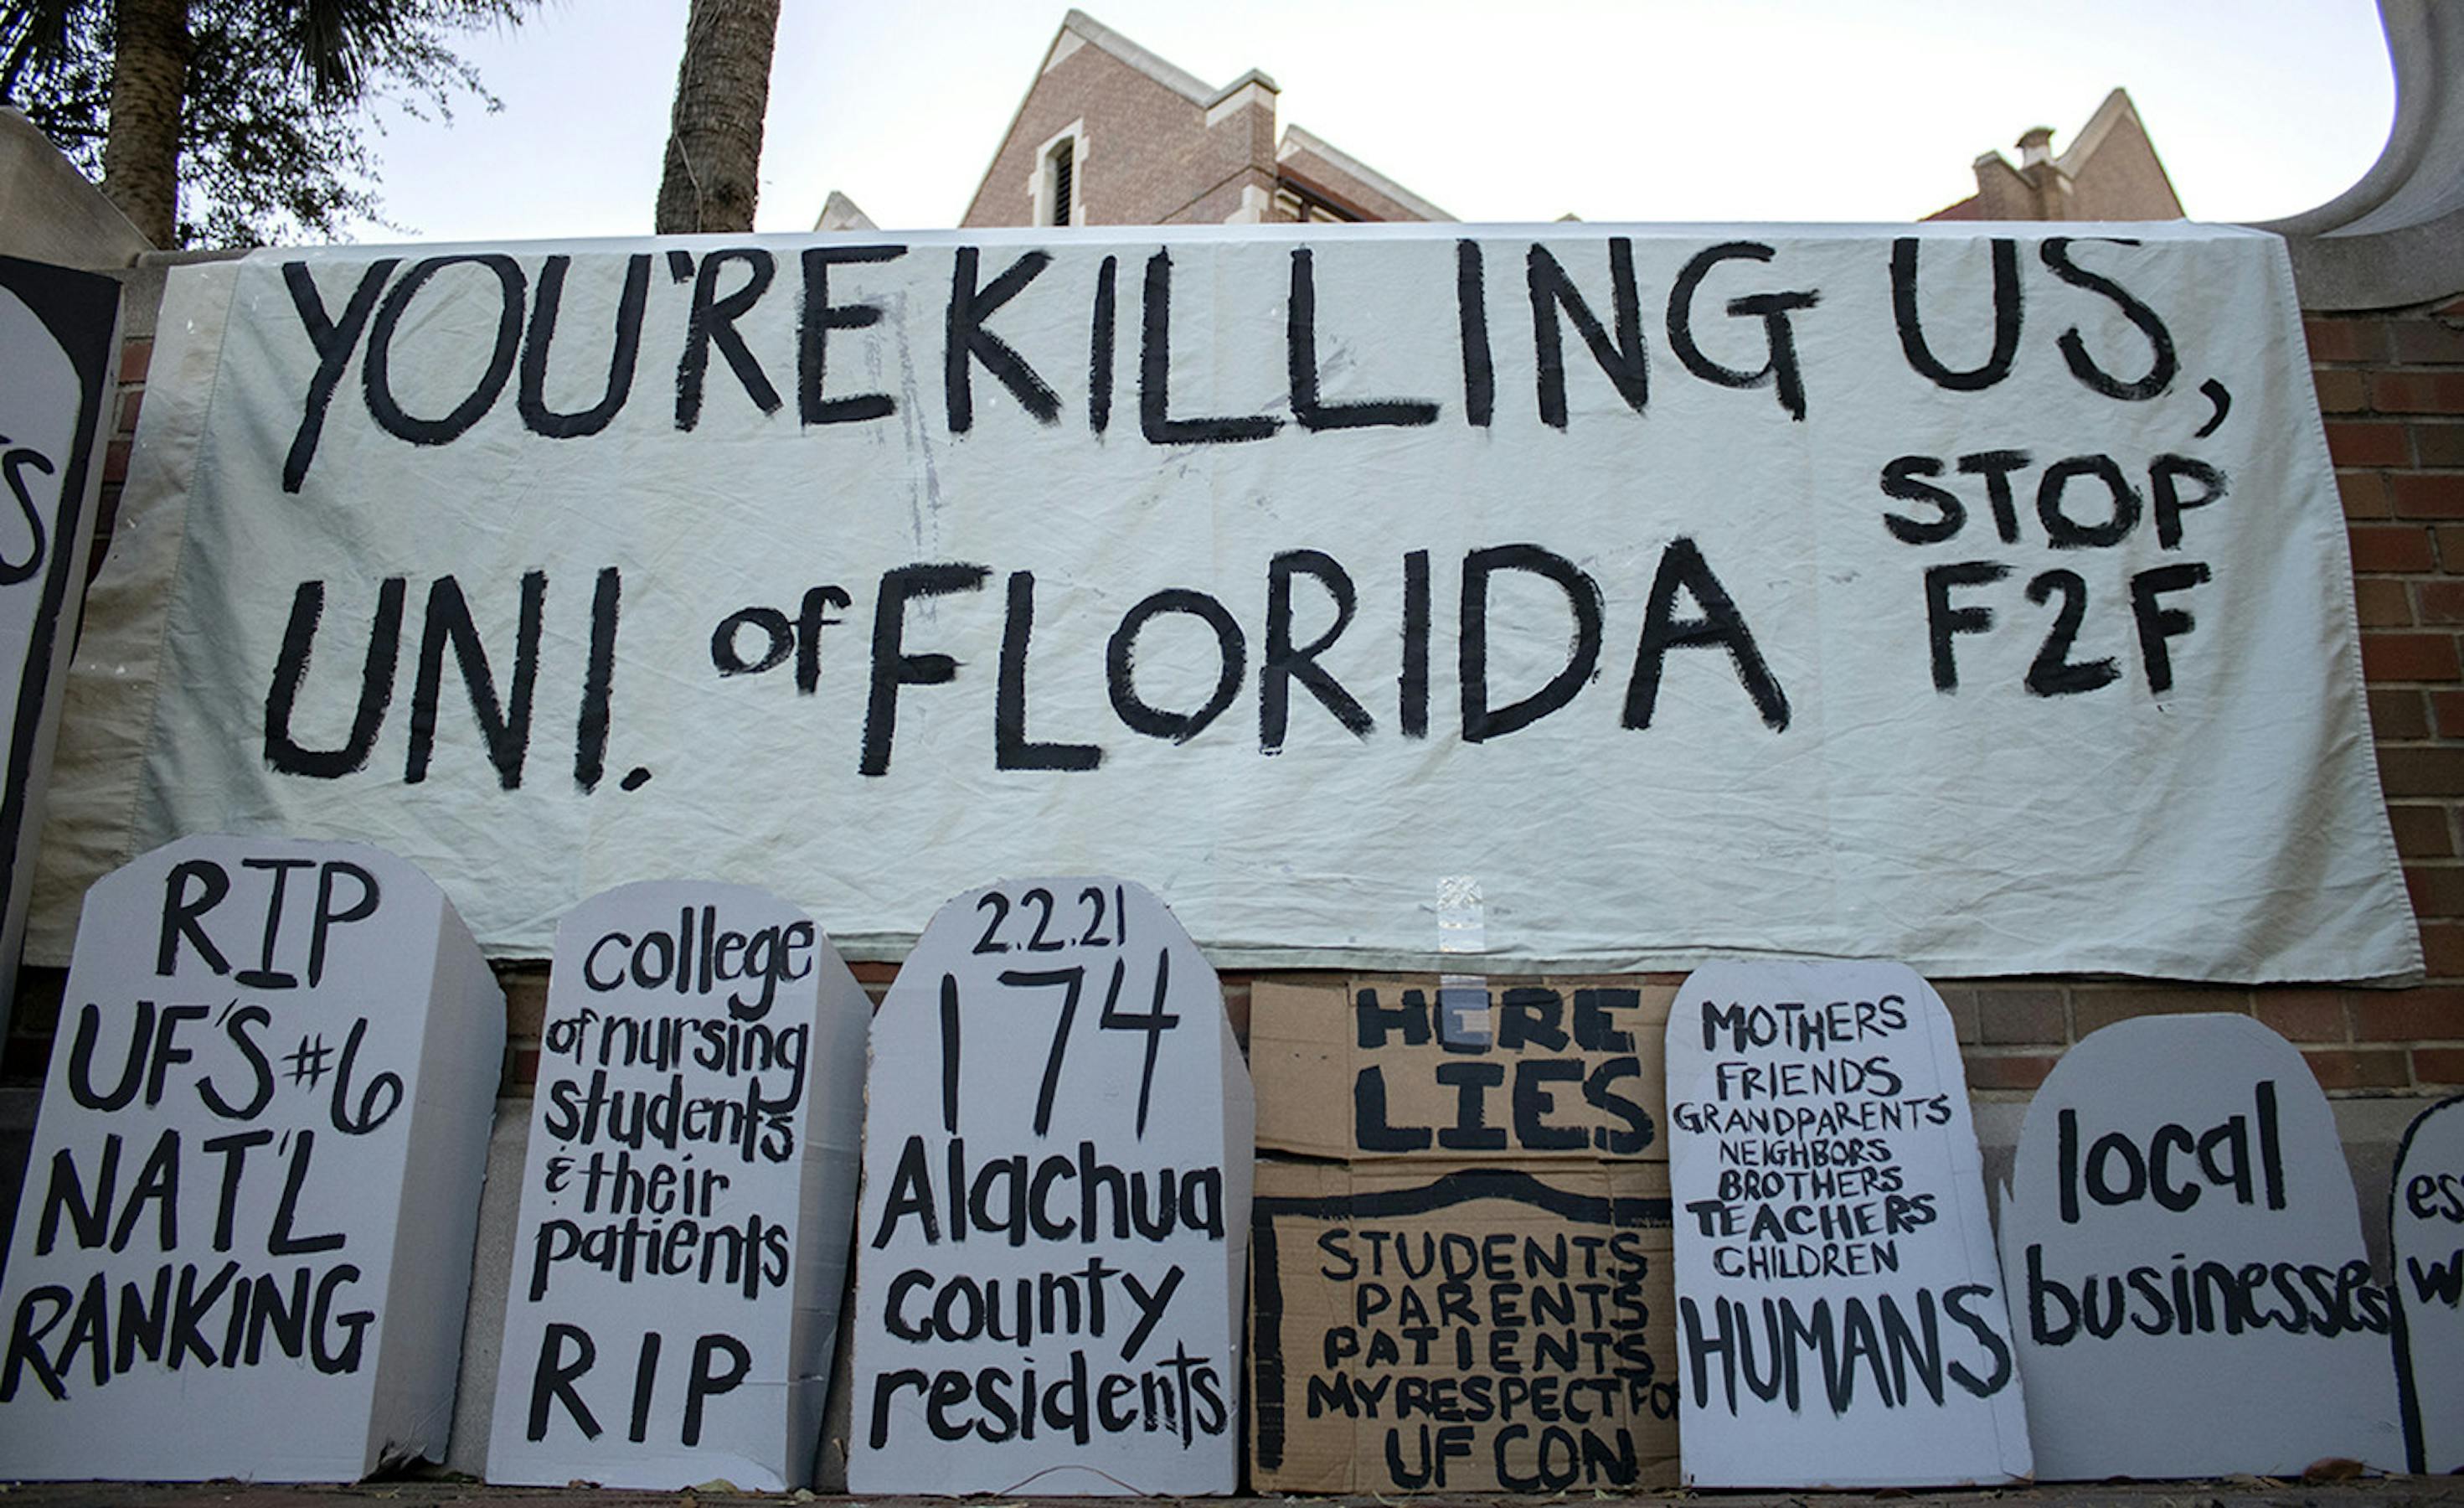 YOU'RE KILLING US,
STOP
F2F
UNI. of FLORIDA
RIP
UF'S #6
NAT'L
RANKING
college
of nursing
students
& their
patients
RIP
2.2.21
174
Alachua
county
residents
HERE
LIES
STUDENTS
PARENTS
PATIENTS
MY RESPECT FOR
UF CON
MOTHERS
FRIENDS
GRANDPARENTS
NEIGHBORS
BROTHERS
TEACHERS
CHILDREN
HUMANS
local
businesses